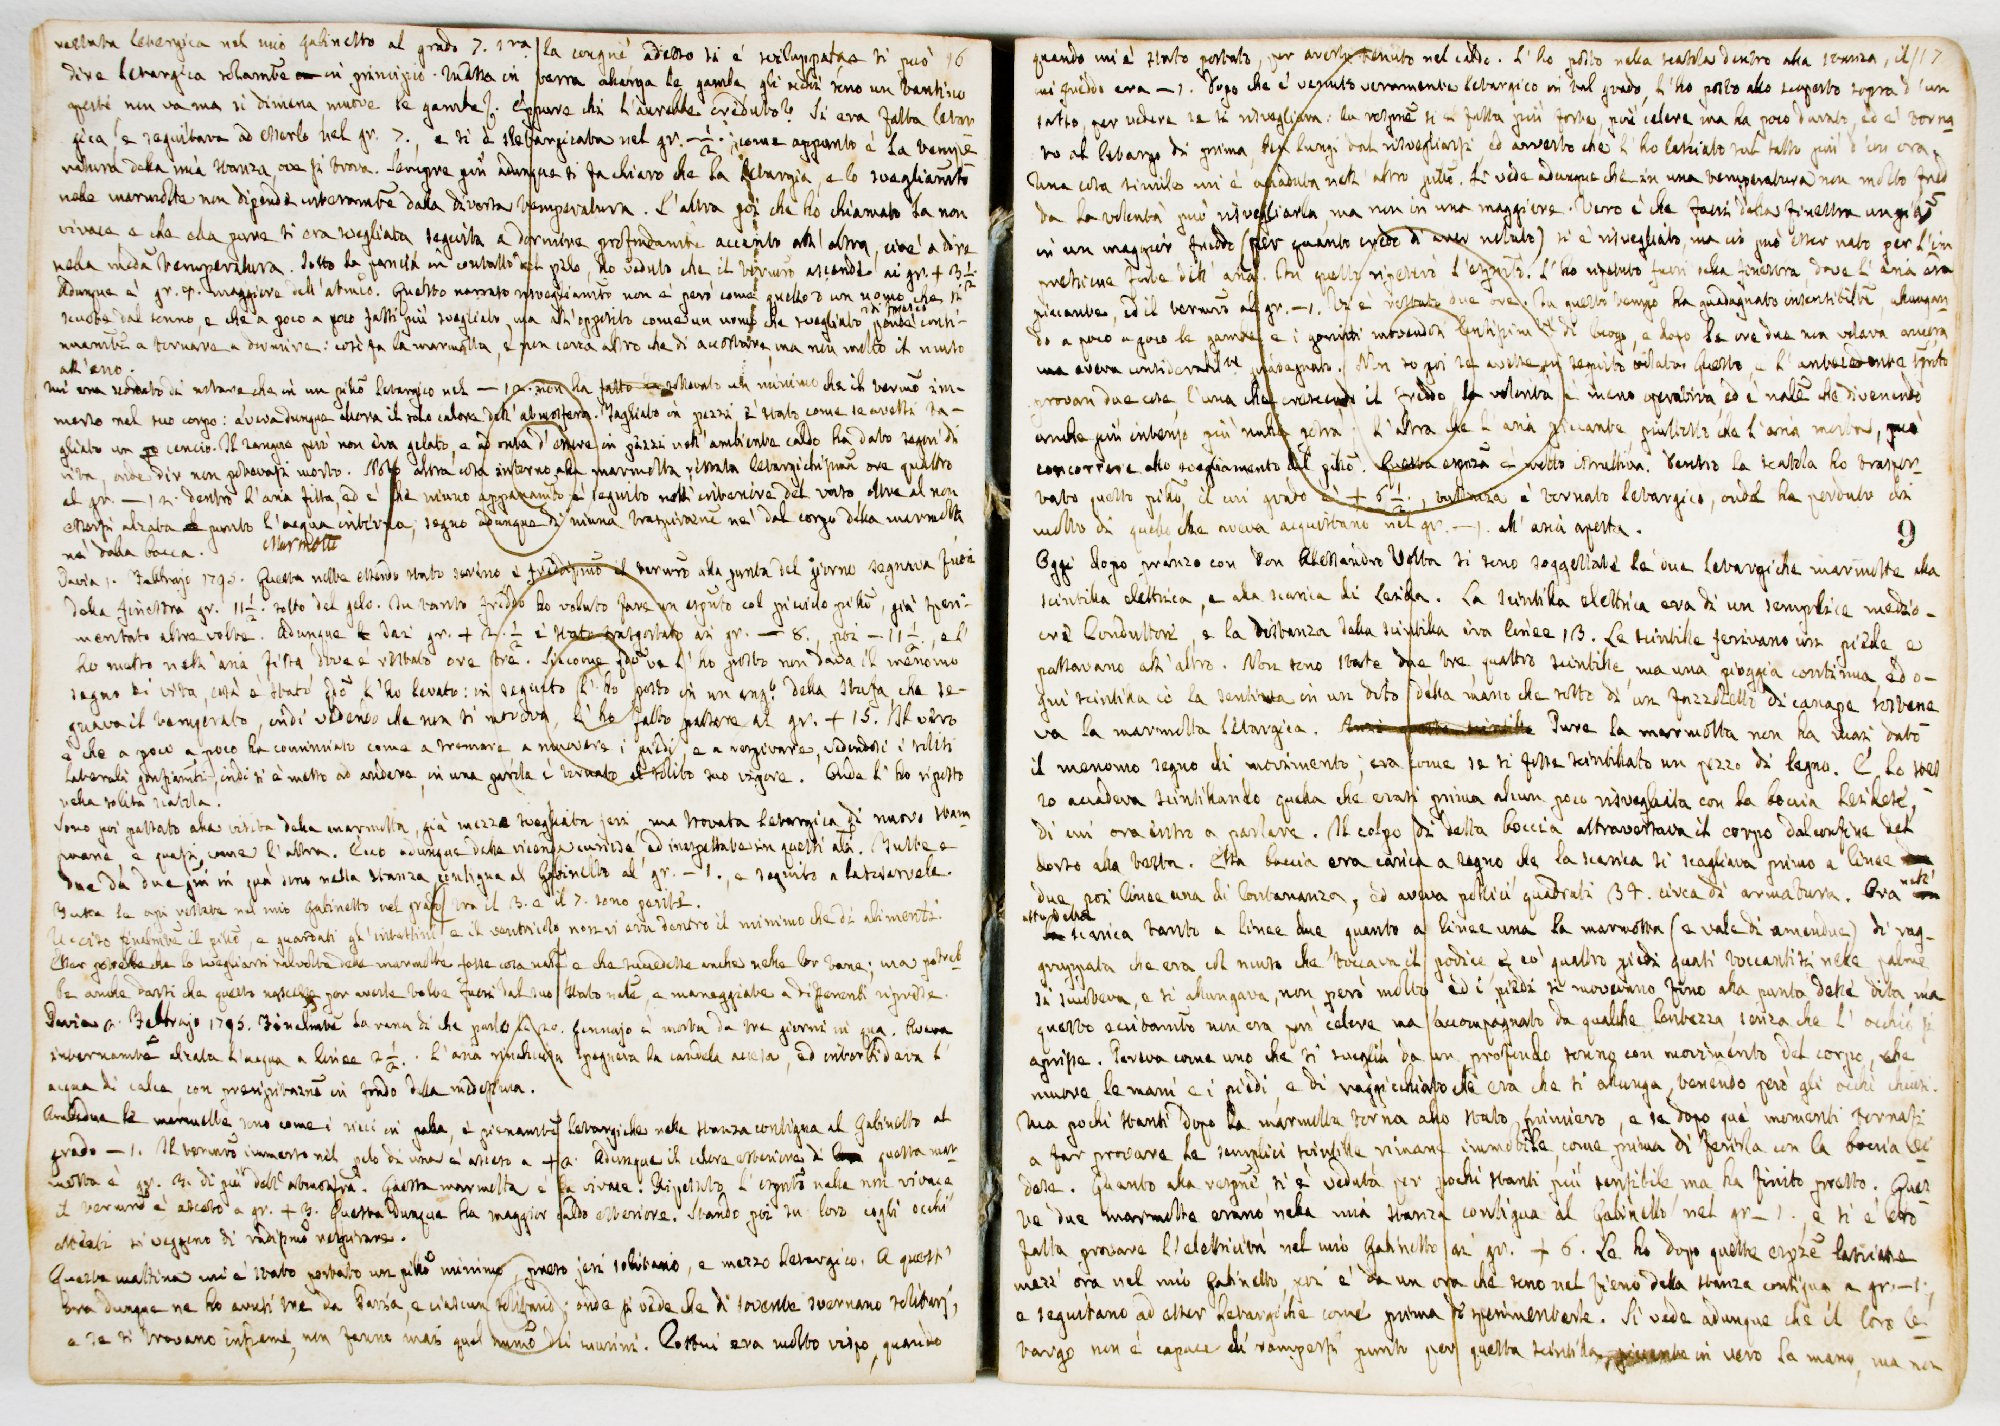 restata letargica nel mio Gabinetto al grado 7. ora la congnè adesso si è sviluppata si può 16
dire letargica soltanto in principio. Messa in terra allarga le gambe, gli occhi sono un tantino
aperti non va ma si dimena muove le gambe. Eppure chi l'avrebbe creduto? Si era fatta letar
gica e seguitava ad esserlo nel gr. 7., e si è sletargicata nel gr. — 1/2., come appunto è la tempe
ratura della mia stanza, ove si trova. Sempre più adunque si fa chiaro che la letargia, e lo svegliamto
nelle marmotte non dipende interamte dalla diversa temperatura. L'altra poi che ho chiamato la non
vivace e che ella pure si era svegliata seguita a dormire profondamte accanto all'altra, cioè a dire
nella meda temperatura. Sotto la pancia in contatto col pelo, ho veduto che il termro ascende ai gr. + 3 1/2.
Adunque è gr. 4. maggiore dell'atmico. Questo narrato risvegliamto non è però come quello d'un uomo che si
scuote dal sonno, e che a poco a poco fassi più svegliato, ma all'opposto come un uomo che svegliato di fresco conti-
nuamte a tornare a dormire: così fa la marmotta, e non cerca altro che di accostare, ma non molto il muso
all'ano.
Mi era scordato di notare che in un pilto letargico nel — 12. non ha sollevato un minimo che il termro im-
merso nel suo corpo: aveva dunque allora il solo calore dell'atmosfera. Tagliato in pezzi è stato come se avessi ta-
gliato un cencio. Il sangue però non era gelato, e ad onta d'essere in pezzi nell'ambiente caldo ha dato segni di
vita, onde dir non potevasi morto. Noto altra cosa intorno alla marmotta, tenuta letargichissima ore quattro
al gr. — 12. dentro l'aria fitta, ed è che niuno appannamto è seguito nell'interiore del vaso, oltre al non
essersi alzata punto l'acqua interna; segno adunque di niuna traspirazne nè dal corpo della marmotta
nè dalla bocca. Marmotte
Pavia 1. Febbrajo 1795. Questa notte essendo stato sereno e freddissimo il termro alla punta del giorno segnava fuori
della finestra gr. 11 1/2. sotto del gelo. In tanto freddo ho voluto fare un esprto col piccolo pilto, già speri-
mentato altre volte. Adunque dai gr. + 2. 1/2 è stato trasportato ai gr. — 8., poi — 11 1/2., e l'
ho messo nell'aria fitta dove è restato ore tre. Siccome qdo ve l'ho posto non dava il menomo
segno di vita, così è stato qdo l'ho levato: in seguito l'ho posto in un ango della stufa, che se-
gnava il temperato, indi vedendo che non si moveva, l'ho fatto passare ai gr. + 15. Il vero
è che a poco a poco ha cominciato come a tremare a muovere i piedi, e a respirare, vedendosi i soliti
laterali gonfiamti, indi si è messo ad andare, in una parola è tornato al solito suo vigore. Onde l'ho riposto
nella solita scatola.
Sono poi passato alla visita della marmotta, già mezza svegliata jeri, ma trovata letargica di nuovo stam
mane, e quasi come l'altra. Ecco adunque delle vicende curiose ed inaspettate in questi ali. Tutte e
due da due gni in quà sono nella stanza contigua al Gabinetto al gr. — 1., e seguito a lasciarvele.
Tutte le api restate nel mio Gabinetto nel grado tra il 3. e il 7. sono perite.
Ucciso finalmte il pilto, e guardati gl'intestini, e il ventricolo non vi era dentro il minimo che di alimenti.
Esser potrebbe che lo svegliarsi talvolta delle marmotte fosse cosa nale e che succedesse anche nelle lor tane; ma potreb-
be anche darsi che questo nascesse per averle tolte fuori dal suo stato nale, e maneggiate a differenti riprese.
Pavia 2. Febbrajo 1795. Finalmte la rana di che parlo li 20. Gennajo è morta da tre giorni in qua. Aveva
internamte alzata l'acqua a linee 2 1/2.. L'aria rinchiusa spegneva la candela accesa, ed intorbidava l'
acqua di calce, con precipitazne in fondo della medesima.
Ambedue le marmotte sono come i ricci in palla, e pienamte letargiche nella stanza contigua al Gabinetto al
grado — 1. Il termro immerso nel pelo di una è asceso a + 2. Adunque il calore esteriore di questa mar
motta è gr. 3. di più dell'atmosfera. Questa marmotta è la vivace. Ripetuto l'esprto nella non vivace
il termro è asceso a gr. + 3. Questa dunque ha maggior caldo esteriore. Stando poi su loro cogli occhi
attenti si veggono di radissimo respirare.
Questa mattina mi è stato portato un pilto minimo, preso jeri solitario, e mezzo letargico. A quest'
ora dunque ne ho avuti tre da Pavia, e ciascun solitario; onde si vede che di sovente svernano solitarj,
e se si trovano insieme, non fanno mai quel numo dei murini. Costui era molto vispo, quando
quando mi è stato portato, per averlo tenuto nel caldo. L'ho posto nella scatola dentro alla stanza, il 17
cui freddo era — 1. Dopo che è venuto veramente letargico in tal grado, l'ho posto allo scoperto sopra d'un
sasso, per vedere se si risvegliava: la respne si è fatta più forte, più celere ma ha poco durato, ed è torna
to al letargo di prima, ben lungi dal risvegliarsi ed avverto che l'ho lasciato sul sasso più d'un ora.
Una cosa simile mi è accaduta nell'altro pilto. Si vede adunque che in una temperatura non molto fred
da la volontà può risvegliarla, ma non in una maggiore. Vero è che fuori della finestra un
in un maggior freddo (per quanto credo di aver notato) si è risvegliato, ma ciò può esser nato per l'im
pressione forte dell'aria. In quello ripeterò l'esprto. L'ho ripetuto fuori della finestra dove l'aria era
piccante, ed il termro al gr. — 1. Vi è restato due ore. In questo tempo ha guadagnato insensibilte, allungan
do a poco a poco le gambe, e i gomiti movendosi lentissimte di luogo, e dopo le ore due non volava ancora
ma aveva considerabilte guadagnato. Non so poi se avesse in seguito volato. Questo, e l'antecedente sprto
provan due cose, l'una che crescendo il freddo la volontà è meno operativa, ed è nale che divenendo
anche più intenso più nulla potrà; l'altra che l'aria piccante, piuttosto che l'aria morta, può
concorrere allo svegliamento del pilto. Questa esprza è molto istruttiva. Dentro la scatola ho traspor
tato questo pilto, il cui grado è + 6 1/2., bastanza è tornato letargico, onde ha perduto assai
molto di quello che aveva acquistano nel gr. — 1. all'aria aperta.
9
Oggi dopo pranzo con Don Alessandro Volta si sono soggettate le due letargiche marmotte alla
scintilla elettrica, e alla scarica di Leida. La scintilla elettrica era di un semplice medio-
cre Conduttore, e la distanza della scintilla era linee 13. Le scintille ferivano un piede e
passavano all'altro. Non sono state due tre quattro scintille, ma una pioggia continua, ed o-
gni scintilla io la sentiva in un dito della mano che sotto di un fazzoletto di canape sostene
va la marmotta letargica. Pure la marmotta non ha mai dato
il menomo segno di movimento; era come se si fosse scintillato un pezzo di legno. E lo stes
so accadeva scintillando quella che erasi prima alcun poco risvegliata con la boccia Leidese,
di cui ora entro a parlare. Il colpo di detta boccia attraversava il corpo dal confine del
dorso alla testa. Essa boccia era carica a segno che la scarica si scagliava primo a linee
due, poi linee una di lontananza, ed aveva pollici quadrati 34. circa di armatura. Ora nell'
atto della scarica tanto a linee due quanto a linee una la marmotta (e vale di amendue) di rag-
gruppata che era col muso che toccava il podice, e co' quattro piedi quasi toccantisi nelle palme
si scuoteva, e si allungava, non però molto ed i piedi si movevano fino alla punta delle dita ma
questo eccitamto non era però celere ma accompagnato da qualche lentezza, senza che l'occhio si
aprisse. Pareva come uno che si sveglia da un profondo sonno con movimento del corpo, che
muove le mani e i piedi, e di raggricchiato che era che si allunga, tenendo però gli occhi chiusi.
Ma pochi istanti dopo la marmotta torna allo stato primiero, e se dopo que' momenti tornasi
a far provare le semplici scintille rimane immobile, come prima di ferirla con la boccia Lei
dese. Quanto alla respne, si è veduta per pochi istanti più sensibile, ma ha finito presto. Ques
te due marmotte erano nella mia stanza contigua al Gabinetto nel gr — 1., e si è loro
fatta provare l'elettricità nel mio Gabinetto ai gr. + 6. Le ho dopo quelle esprze lasciate
mezz'ora nel mio Gabinetto, poi è da un ora che sono nel freno della stanza contigua a gr. — 1.,
e seguitano ad esser letargiche come prima di sperimentarle. Si vede adunque che il loro le-
targo non è capace di rompersi punto per questa scintilla, piccante in vero la mano, ma non